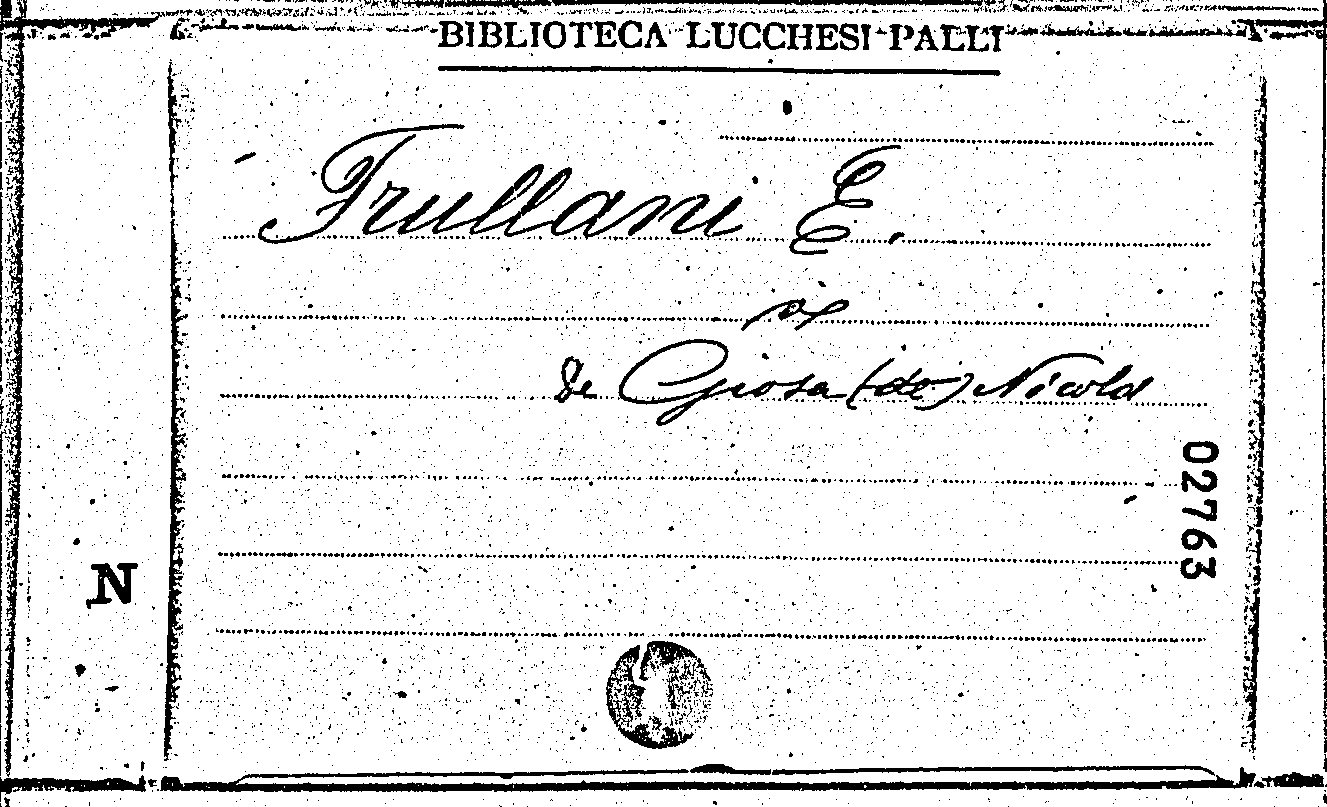 BIBLIOTECA LUCCHESI-PALLI
Frullani E.
de Giosa (de) Nicola
02763
N